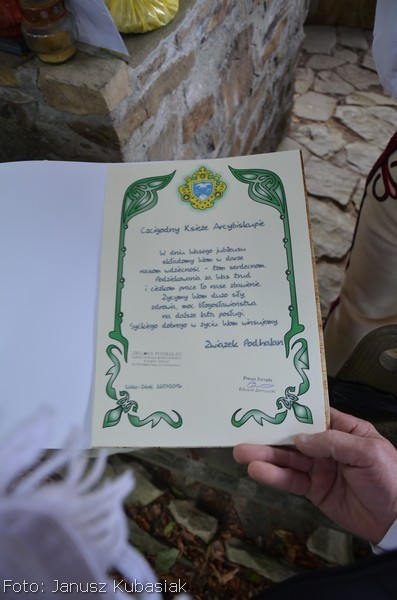 Czcigodny Księże Arcybiskupie
W dniu Waszego jubileuszu
składomy Wom w darze
naszom wdzięczność - tom serdecnom
Podziękowania za Was trud
i ciężkom prace to nase zbawienie.
Życymy Wom duzo siły,
zdrowia, moc błogosławieństwa
na dalsze lata posługi
Syćkiego dobrego w życiu Wom winsujemy.
Związek Podhalan
ZWIĄZEK PODHALAN
Prezes Zarządu
Foto: Janusz Kubasiak